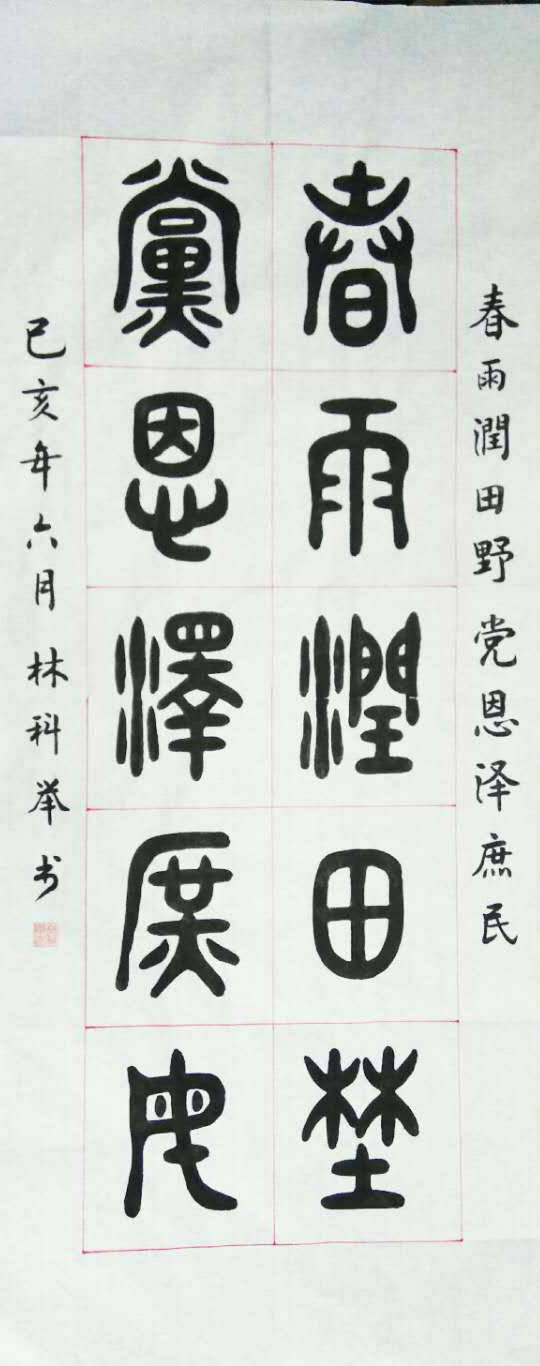 春雨潤田野党恩泽庶民
春雨潤田埜
黨恩澤庶民
己亥年六月林科举书